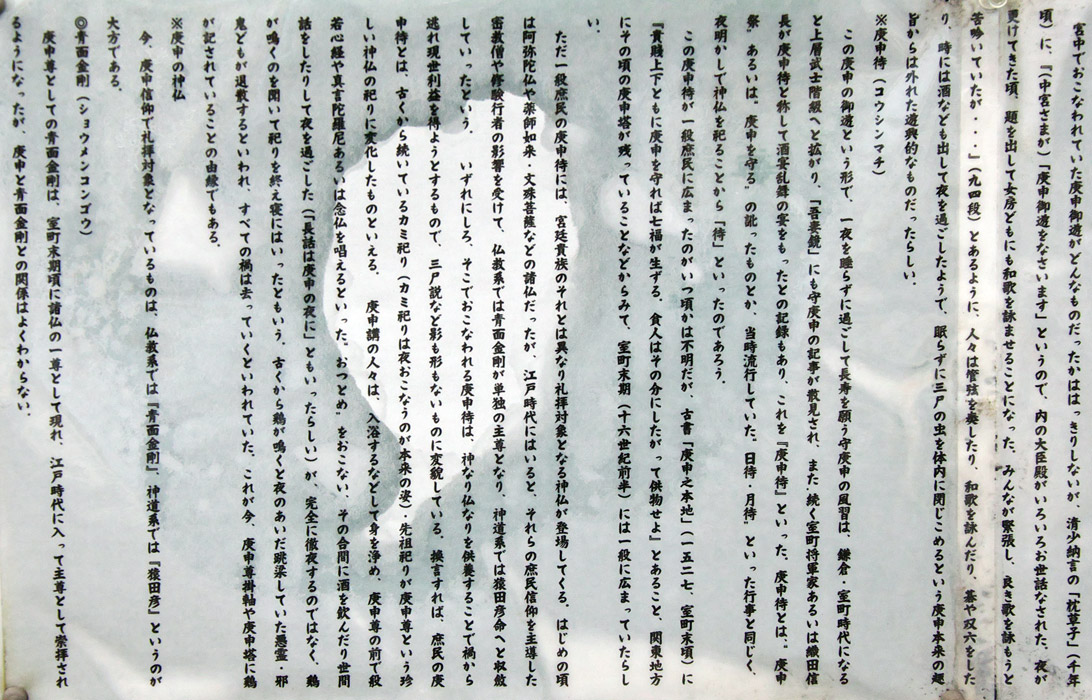 宮中でおこなわれていた庚申御遊がどんなものだったかははっきりしないが、清少納言の「枕草子」(千年
頃)に、『(中宮さまが)「庚申御遊をなさいます」というので、内の大臣殿がいろいろお世話なされた、夜が
更けてきた頃、題を出して女房どもにも和歌を詠ませることになった、みんなが緊張し、良き歌を詠もうと
苦吟いていたが・・・』(九四段)とあるように、人々は管弦を奏したり、和歌を詠んだり、碁や双六をした
り、時には酒なども出して夜を過ごしたようで、眠らずに三尸の虫を体内に閉じこめるという庚申本来の趣
旨からは外れた遊興的なものだったらしい。
※庚申待(コウシンマチ)
この庚申の御遊という形で、一夜を睡らずに過ごして長寿を願う守庚申の風習は、鎌倉・室町時代になる
と上層武士階級へと拡がり、「吾妻鏡」にも守庚申の記事が散見され、また続く室町将軍家あるいは織田信
長が庚申待と称して酒宴乱舞の宴をもったとの記録もあり、これを『庚申待』といった、庚申待とは、〝庚申
祭〟あるいは〝庚申を守る〟の訛ったものとか、当時流行していた、日待・月待〟といった行事と同じく、
夜明かしで神仏を祀ることから「待」といったのであろう。
この庚申待が一般庶民に広まったのがいつ頃かは不明だが、古書「庚申之本地」(一五二七、室町末頃)に
『貴賤上下ともに庚申を守れば七福が生ずる。貧人はその分にしたがって供物せよ』とあること、関東地方
にその頃の庚申塔が残っていることなどからみて、室町末期(十六世紀前半)には一般に広まっていたらし
い。
ただ一般庶民の庚申待には、宮廷貴族のそれとは異なり礼拝対象となる神仏が登場してくる。はじめの頃
は阿弥陀仏や薬師如来・文殊菩薩などの諸仏だったが、江戸時代にはいると、それらの庶民信仰を主導した
密教僧や修験行者の影響を受けて、仏教系では青面金剛が単独の主尊となり、神道系では猿田彦命へと収斂
していったという。 いずれにしろ、そこでおこなわれる庚申待は、神なり仏なりを供養することで禍から
逃れ現世利益を得ようとするもので、三尸説など影も形もないものに変貌している。換言すれば、庶民の庚
申待とは、古くから続いているカミ祀り(カミ祀りは夜おこなうのが本来の姿)・先祖祀りが庚申尊という珍
しい神仏の祀りに変化したものといえる。 庚申講の人々は、入浴するなどして身を浄め、庚申尊の前で般
若心経や真言陀羅尼あるいは念仏を唱えるといった、おつとめ〟をおこない、その合間に酒を飲んだり世間
話をしたりして夜を過ごした(「長話は庚申の夜に」ともいったらしい)が、完全に徹夜するのではなく、鶏
が鳴くのを聞いて祀りを終え寝にはいったともいう、古くから鶏が鳴くと夜のあいだ跳梁していた悪霊・邪
鬼どもが退散するといわれ、すべての禍は去っていくといわれていた、これが今、庚申尊掛軸や庚申塔に鶏
が記されていることの由縁でもある。
※庚申の神仏
今、庚申信仰で礼拝対象となっているものは、仏教系では『青面金剛』、神道系では『猿田彦』というのが
大方である。
◎青面金剛(ショウメンコンゴウ)
庚申尊としての青面金剛は、室町末期頃に諸仏の一尊として現れ、江戸時代に入って主尊として崇拝され
るようになったが、庚申と青面金剛との関係はよくわからない。